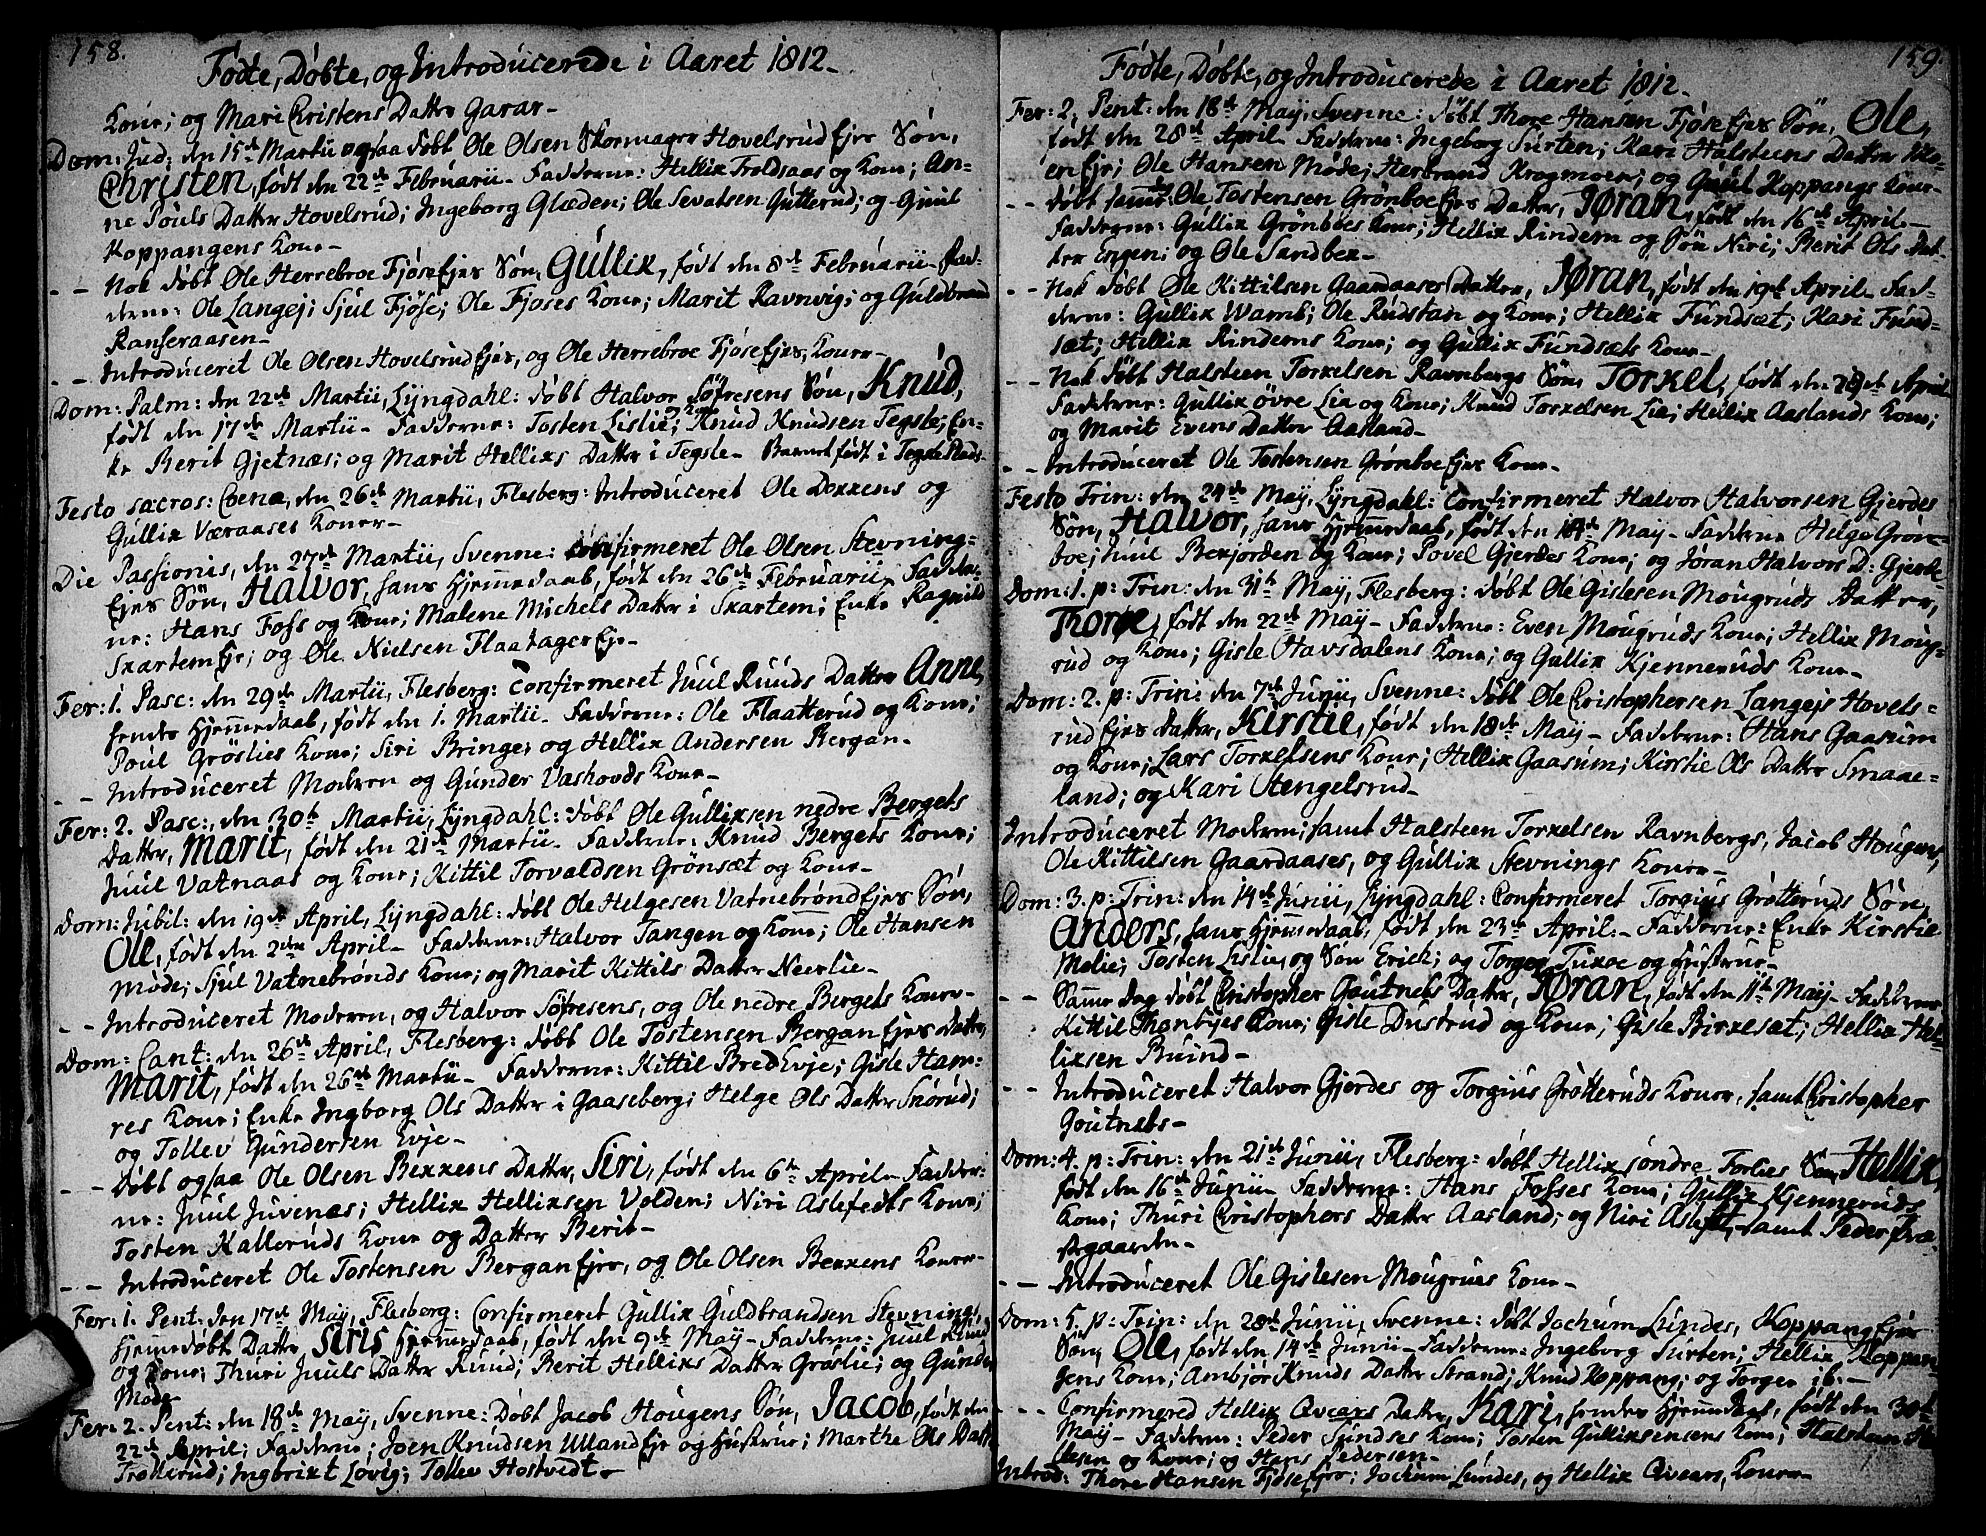 158.
Fødte, Døbte, og Introducerede i Aaret 1812.
Kone; og Mari Christens Datter Garar-
Dom: Jud: den 15de Martii ogsaa døbt Ole Olsen Skomager Hovelsrud Ejes Søn,
Christen, født den 22de Februarii- Fadderne: Hellix Troldsaas og Kone; An-
ne Pouls Datter Hovelsrud; Ingeborg Glæden; Ole Sevatsen Gutterud; og Guul
Koppangens Kone-
- - Nok døbt Ole Herrebroe Fjøse Ejes Søn, Gullix, født den 8de Februarii- Fad-
derne: Ole Langej; Sjul Fjøse; Ole Fjøses Kone; Marit Ravnvig; og Guldbrand
Ranseraasen-
- - Introduceret Ole Olsen Hovelsrud Ejes, og Ole Herrebroe Fjøse Ejes, Koner-
Dom: Palm: den 22de Martii, Lyngdahl: døbt Halvor Søfresens Søn, Knud,
født den 17de Martii- Fadderne: Tosten Lislie; Knud Knudsen Tegsle; En-
ke Berit Gjetnæs; og Marit Hellixs Datter i Tegsle- Barnet født i Tegsle Plads
Festo sacros: Coena, den 26de Martii, Flesberg: Introduceret Ole Dexxens og
Gullix Væraases Koner-
Die Passionis, den 27de Martii, Svenne: Confirmeret Ole Olsen Stevning-
Ejes Søn, Halvor, hans Hjemmedaab, født den 26de Februarii, Fadder-
ne: Hans Foss og Kone; Malene Michels Datter i Skartem; Enke Ragnild
Skartem Eje; og Ole Nielsen Flaatager Eje-
Fer: 1. Pasc: den 29de Martii, Flesberg: Confirmeret Juul Ruuds Datter Anne,
hendes Hjemmedaab, født den 1. Martii- Fadderne: Ole Flaatterud og Kone;
Poul Grøslies Kone; Siri Bringe; og Hellix Andersen Bergan-
- - Introduceret Moderen og Gunder Vashovds Kone-
Fer: 2. Pasc:, den 30te Martii, Lyngdahl: døbt Ole Gullixsen nedre Bergets
Datter, Marit, født den 21de Martii- Fadderne: Knud Bergets Kone;
Juul Vatnaas og Kone; Kittil Torvaldsen Grønsæt og Kone-
Dom: Jubil: den 19de April, Lyngdahl: døbt Ole Helgesen Vatnebrønd Ejes Søn,
Ole, født den 2den April- Fadderne: Halvor Tangen og Kone; Ole Hansen
Møde; Sjul Vatnebrønds Kone; og Marit Kittils Datter Neerlie-
- - Introduceret Moderen, og Halvor Søfresens, og Ole nedre Bergets Koner-
Dom: Cant: den 26de April, Flesberg: døbt Ole Tostensen Bergan Ejes Datter,
Marit, født den 26de Martii- Fadderne: Kittil Bred Evje; Gisle Ham-
res Kone; Enke Ingborg Ols Datter i Gaaseberg; Helge Ols Datter Snørud;
og Tollev Gundersen Evje-
- - Døbt ogsaa Ole Olsen Bexxens Datter, Siri, født den 6te April- Fadder-
ne: Juul Juvenæs; Hellix Hellixsen Volden; Niri Aslefedts Kone;
Tosten Kalleruds Kone og Datter Berit-
- - Introduceret Ole Tostensen Bergan Ejes, og Ole Olsen Bexxens Koner-
Fer: 1. Pent: den 17de May, Flesberg: Confirmeret Gullix Guldbrandsen Stevnings
hjemmedøbt Datter, Siris Hjemmedaab, født den 9de May- Fadderne: Juul Ruud
og Kone; Thuri Juuls Datter Ruud; Berit Hellixs Datter Grøslie; og Gunder
Møde
Fer: 2. Pent: den 18de May, Svenne: Døbt Jacob Hougens Søn, Jacob, født den
22de April; Fadderne; Joen Knudsen Ulland Eje og Hustrue; Marthe Ols Datter
Trollerud; Ingbrixt Løvig; Tollev Hostvedt-
159.
Fødte, Døbte, og Introducerede i Aaret 1812.
Fer: 2. Pent: den 18de May, Svenne: døbt Thore Hansen Fjøse Ejes Søn, Ole,
født den 28de April- Fadderne: Ingeborg Surten; Kari Halsteens Datter Mo-
en Eje; Ole Hansen Møde; Herbrand Krogmoen; og Guul Koppangs Kone-
- - døbt samme Ole Tostensen Grønboe Ejes Datter, Jøran, født den 16de April-
Fadderne: Gullix Grønboes Kone; Hellix Rindern og Søn Niri; Berit Ols Dat-
ter Engen; og Ole Sandbek-
- - Nok døbt Ole Kittilsen Gaardaases Datter, Jøran, født den 19de April- Fad-
derne: Gullix Wamb; Ole Rudstan og Kone; Hellix Fundsæt; Kari Fund-
sæt; Hellix Rinderns Kone; og Gullix Fundsæts Kone-
- - Nok døbt Halsteen Torxelsen Ravnbergs Søn, Torxel, født den 29de April
Fadderne: Gullix øvre Lia og Kone; Knud Torxelsen Lia; Hellix Aaslands Kone;
og Marit Evens Datter Aasland-
- - Introduceret Ole Tostensen Grønboe Ejes Kone-
Festo Trin: den 24de May, Lyngdahl: Confirmeret Halvor Halvorsen Gjerdes
Søn, Halvor, hans Hjemmedaab, født den May- Fadderne Helge Grøn-
boe; Juul Bexjorden og Kone; Povel Gjerdes Kone; og Jøran Halvors D: Gjerde
Dom: 1. p: Trin: den 31te May, Flesberg: døbt Ole Gislesen Mougruds Datter,
Thore, født den 22de May- Fadderne: Even Mougruds Kone; Hellix Moug-
rud og Kone; Gisle Havsdalens Kone; og Gullix Kjenneruds Kone-
Dom: 2. p: Trin: den 7de Junii, Svenne: døbt Ole Christophersen Langejs Hovels-
rud Ejes Datter, Kirstie, født den 18de May- Fadderne: Hans Gaasum
og Kone; Lars Torxelsens Kone; Hellix Gaasum; Kirstie Ols Datter Smaae-
land; og Kari Stengelsrud-
Introduceret Moderen; samt Halsteen Torxelsen Ravnbergs, Jacob Hougens,
Ole Kittilsen Gaardaases, og Gullix Stevnings Koner-
Dom: 3. p: Trin: den 14de Junii, Lyngdahl: Confirmeret Torgius Grøtteruds Søn,
Anders, hans Hjemmedaab, født den 23de April:- Fadderne: Enke Kirstie
Molie; Tosten Lislie, og Søn Erich; og Torger Tuxoe og Hustrue-
- - Samme Dag døbt Christopher Goutnets Datter, Jøran, født den 11te May- Fadderne
Kittil Thonbyes Kone; Gisle Dustrud og Kone; Gisle Birxesæt; Hellix Hel-
lixsen Bruind-
- - Introduceret Halvor Gjerdes og Torgius Grøtteruds Koner, samt Christopher
Goutnets-
Dom: 4. p: Trin: den 21de Junii, Flesberg: døbt Hellix søndre Forlies Søn, Hellix,
født den 16de Junii- Fadderne: Hans Fosses Kone; Gullix Kjenneruds
Kone; Thuri Christophers Datter Aasland; og Niri Aslefet, samt Peder Præ-
stgaarden-
- - Introduceret Ole Gislesen Mougrues Kone-
Dom: 5. p: Trin: den 28de Junii, Svenne: døbt Jochum Lundes, Koppang Ejes
Søn, Ole, født den 14de Junii- Fadderne: Ingeborg Surten; Hellix Koppan-
gens Kone; Ambjør Knuds Datter Strand; Knud Koppang; og Torger ib:-
- - Confirmered Hellix Qværs Datter, Kari, hendes Hjemmedaab, født den 30te
May- Fadderne: Peder Kone; Tosten Gullixsens Kone; Halsteen
og Kone; og Hans Pedersen-
Introd: Thore Hansen Fjøse Ejes; Jochum Lundes, og Hellix Qværs, Koner-